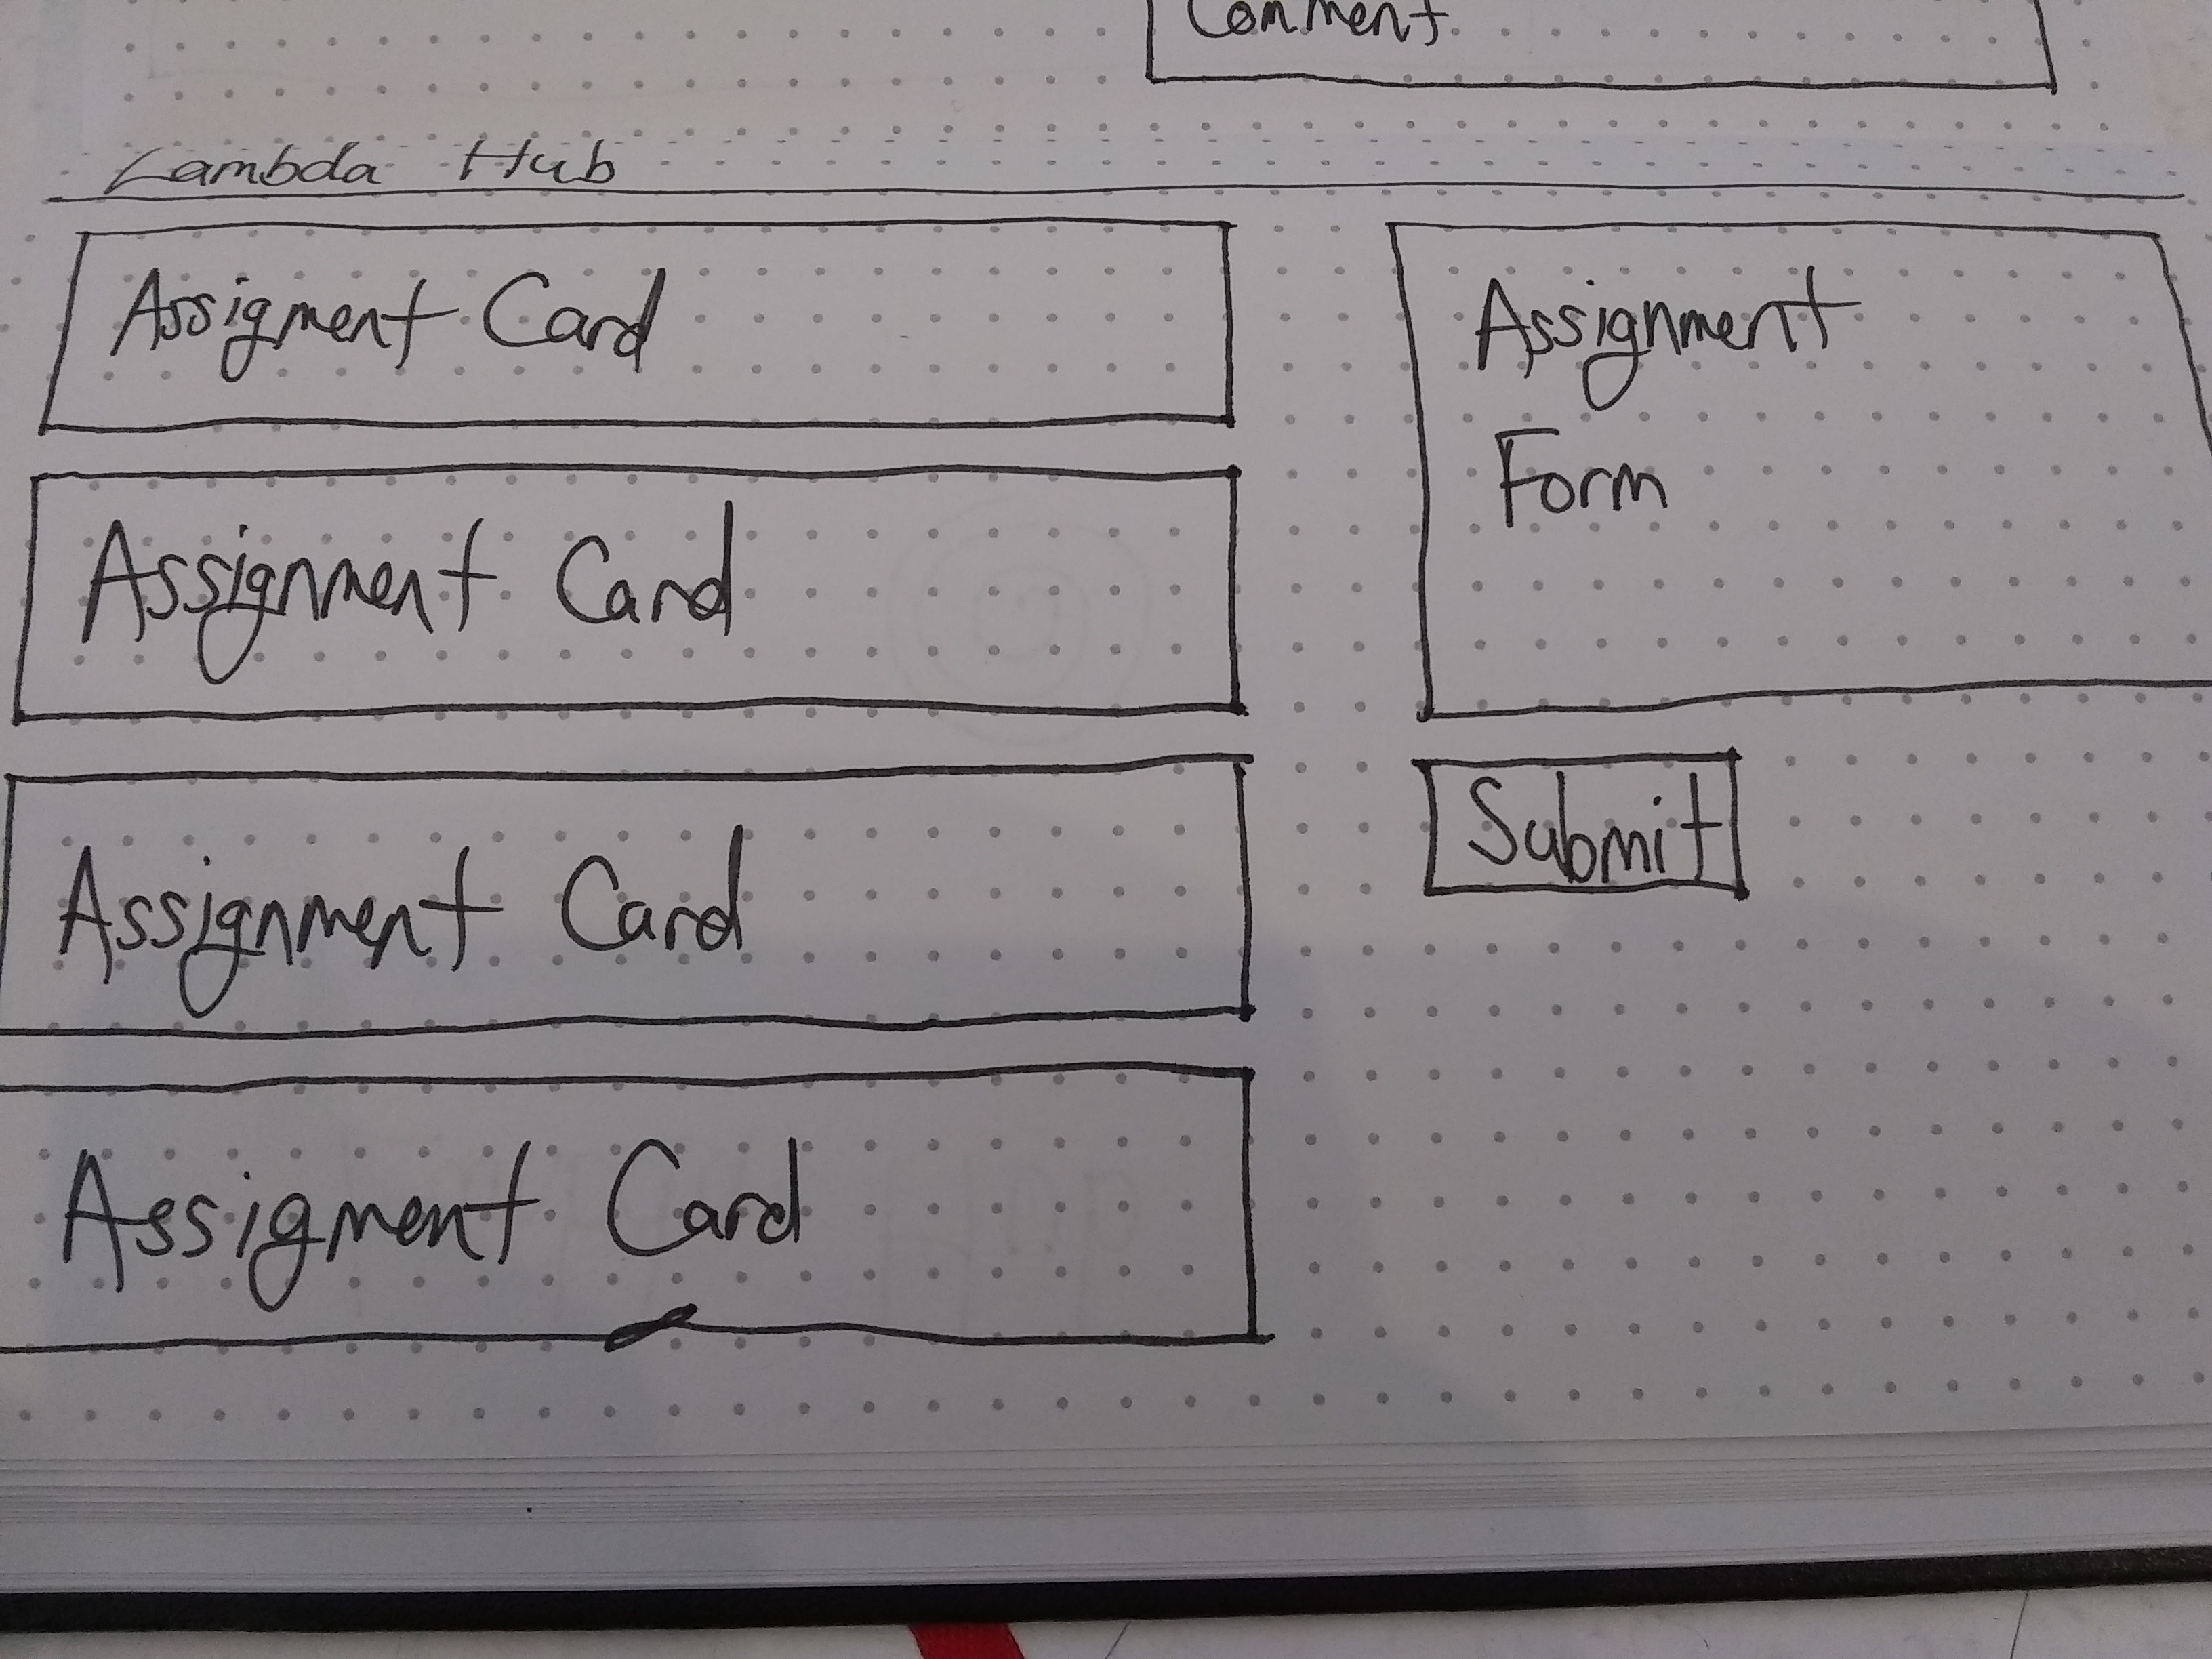 Comment
Lambda Hub
Assigment Card
Assignment Card
Assignment Card
Assigment Card
Assignment
Form
Submit